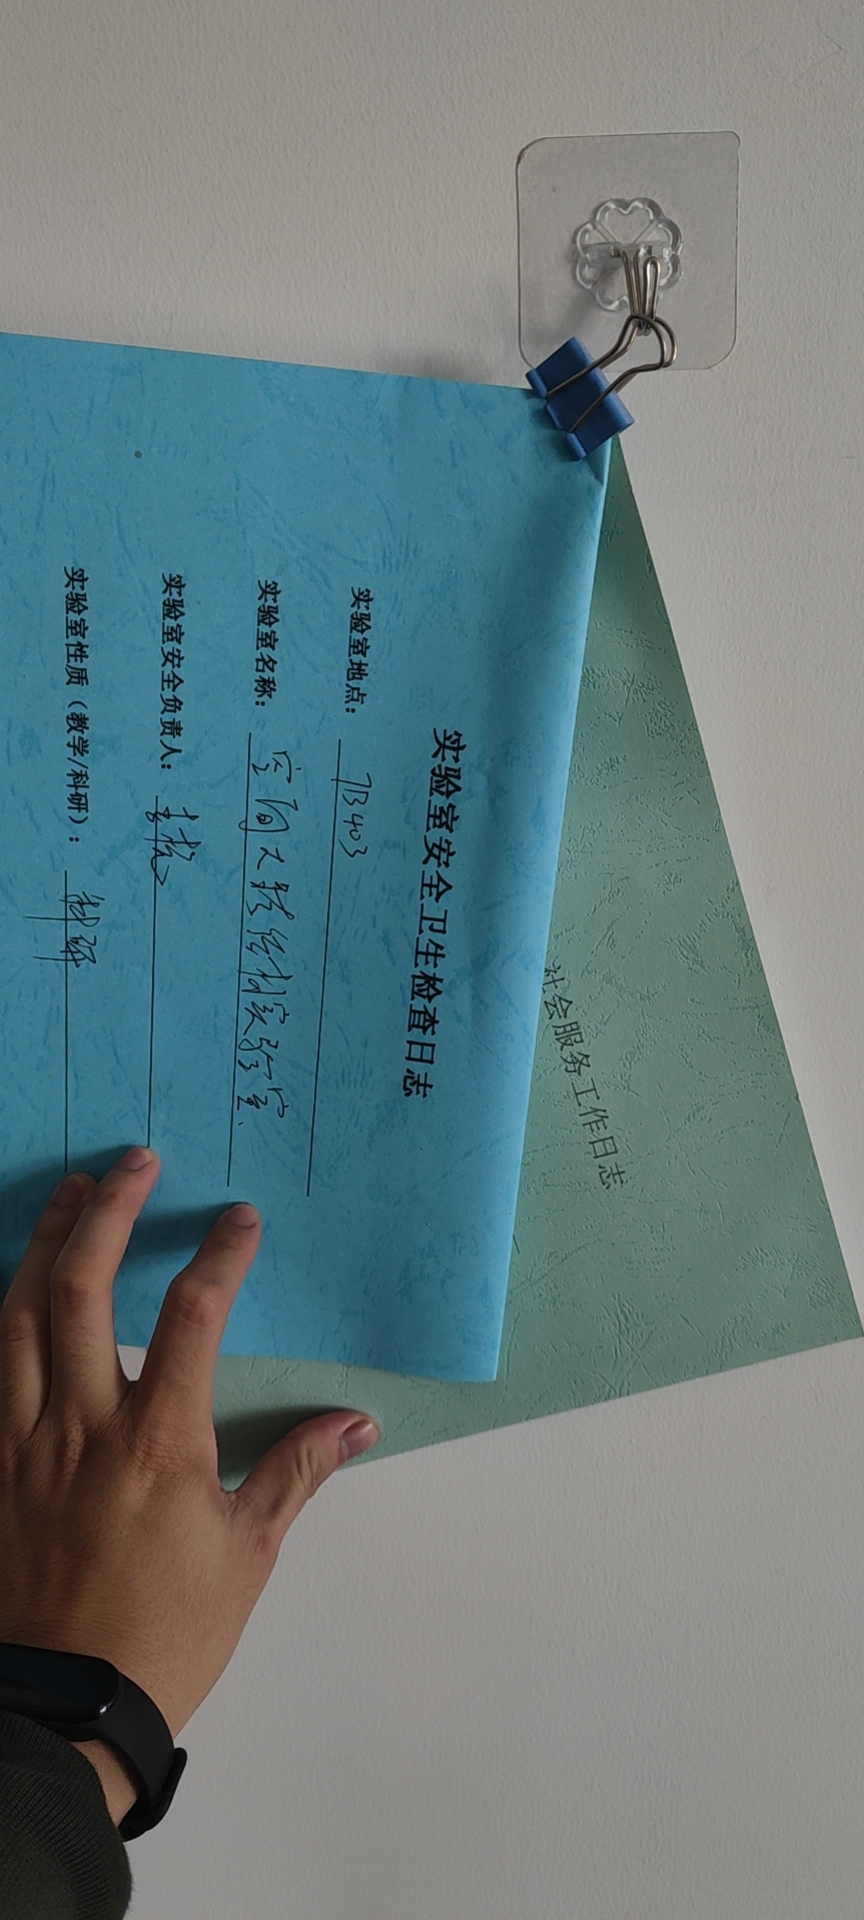 实验室安全卫生检查日志
实验室地点： 7B403
实验室名称： 空间大型结构实验室
实验室安全负责人：
实验室性质（教学/科研）： 科研
社会服务工作日志